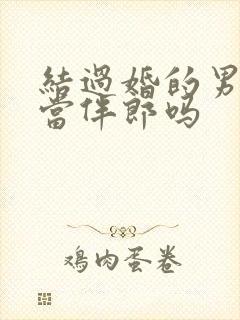 結過婚的男
當伴郎吗
鸡肉蛋卷